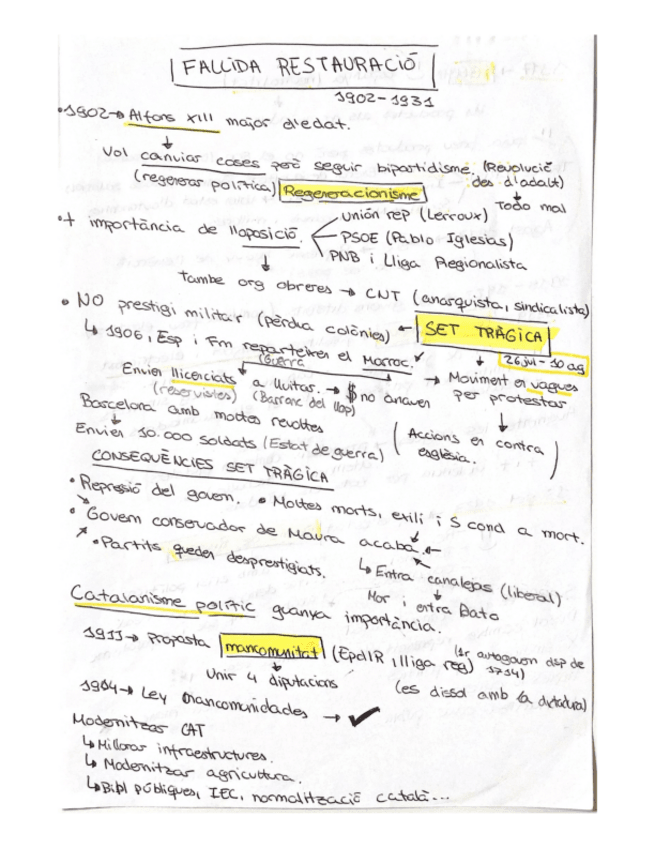 FALLIDA RESTAURACIÓ
1902-1931
• 1902 → Alfons XIII major d'edat.
↓
Vol canviar coses però seguir bipartidisme. (Revolució des d'adalt)
(regenerar política) Regeneracionisme
Todo mal
• + importància de l'oposició.
Unión rep (Lerroux)
PSOE (Pablo Iglesias)
PNB i Lliga Regionalista
↓
També org obreres → CNT (anarquista, sindicalista)
• NO prestigi militar (pèrdua colònies) ← SET TRÀGICA
↳ 1906, Esp i Fm reparteixen el Marroc.
26 jul - 10 ag
(Guerra
Envien llicenciats a lluitar. → $ no anaven
(reservistes) (Barranc del llop)
→ Moviment en vagues per protestar
Barcelona amb moltes revoltes
↓
Envien 10.000 soldats (Estat de guerra)
(Accions en contra església.)
CONSEQÜÈNCIES SET TRÀGICA
• Repressió del govern. • Moltes morts, exili i 5 cond a mort.
• Govern conservador de Maura acaba.
• Partits queden desprestigiats.
↳ Entra canalejas (liberal)
Mor i entra Dato
Catalanisme polític guanya importància.
1911 → Proposta mancomunitat (EpdlR i lliga reg)
(1r autogovern dsp de 1714)
↓
Unir 4 diputacions
(es dissol amb la dictadura)
1904 → Ley mancomunidades → ✓
Modernitzar CAT
↳ Millorar infraestructures.
↳ Modernitzar agricultura.
↳ Bibl públiques, IEC, normalització català...